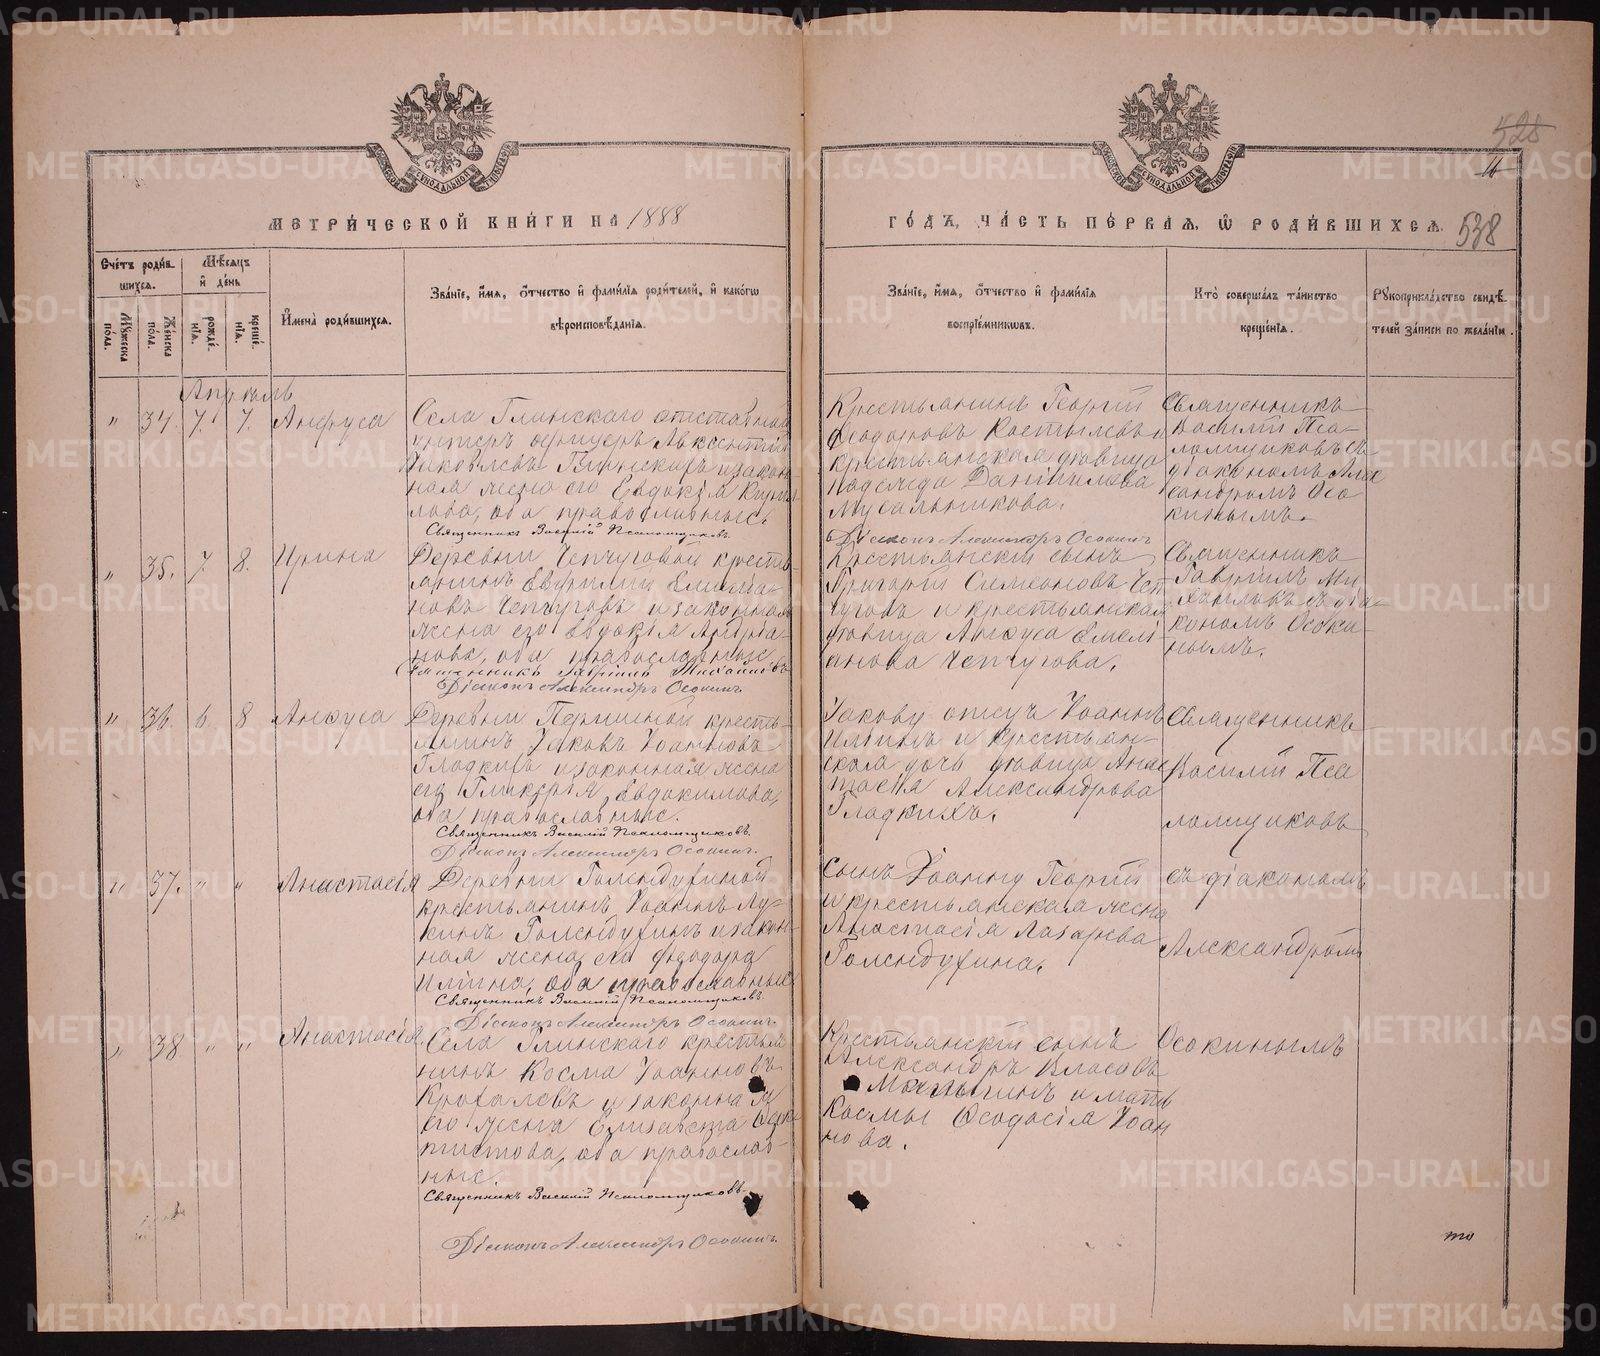 528
11
538
МЕТРИ́ЧЕСКОЙ КНИ́ГИ НА 1888
ГО́ДЪ, ЧА́СТЬ ПЕ́РВАѦ, Ѿ РОДИ́ВШИХСѦ.
Сче́тъ роди́в-
шихсѧ.
Мѣ́сѧцъ
и҆ де́нь
Мꙋ́жеска
по́ла.
Же́нска
по́ла.
рожде́-
нїѧ.
креще́-
нїѧ.
И҆мена̀ роди́вшихсѧ.
Зва́нїе, и҆́мѧ, ѻ҆́тчество и҆ фами́лїѧ роди́телей, и҆ како́гѡ
вѣроисповѣ́данїѧ.
Зва́нїе, и҆́мѧ, ѻ҆́тчество и҆ фами́лїѧ
воспрїе́мникѡвъ.
Кто̀ соверша́лъ та́инство
креще́нїѧ.
Рꙋкоприкла́дство свидѣ́-
телей за́писи по жела́нїю.
Апрѣль
" 34. 7. 7. Анфуса
Села Глинскаго отставной
унтеръ офицеръ Авксентій
Яковлевъ Глинскихъ и закон-
ная жена его Евдокія Кирил-
лова, оба православные.
Священникъ Василій Псаломщиковъ.
Крестьянинъ Георгій
Ѳеодоровъ Костылевъ и
крестьянская дѣвица
Надежда Даніилова
Мусальникова.
Діаконъ Александръ Осокинъ
Священникъ
Василій Пса-
ломщиковъ съ
діакономъ Алек
сандромъ Осо
кинымъ.
" 35. 7 8. Ирина
Деревни Чепчуговой кресть-
янинъ Евфимій Емеліа-
новъ Чепчуговъ и законная
жена его Евдокія Андріа-
нова, оба православные.
Священникъ Гавріилъ Михайловъ
Діаконъ Александръ Осокинъ.
Крестьянскій сынъ
Григорій Симеоновъ Чеп
чуговъ и крестьянская
дѣвица Анфуса Емелі
анова Чепчугова.
Священникъ
Гавріилъ Ми-
хайловъ съ діа-
кономъ Осоки-
нымъ.
" 36. 6. 8 Анфуса
Деревни Першиной кресть-
янинъ Яковъ Іоанновъ
Гладкихъ и законная жена
его Гликерія Евдокимова,
оба православные.
Священникъ Василій Псаломщиковъ.
Діаконъ Александръ Осокинъ.
Якову отецъ Іоаннъ
Ильинъ и крестьян-
ская дочь дѣвица Анас
тасія Александрова
Гладкихъ.
Священникъ
Василій Пса
ломщиковъ
" 37. " " Анастасія
Деревни Голендухиной
крестьянинъ Іоаннъ Лу-
кинъ Голендухинъ и закон-
ная жена его Ѳеодора
Ильина, оба православные
Священникъ Василій Псаломщиковъ.
Діаконъ Александръ Осокинъ.
Сынъ Іоанну Георгій
и крестьянская жена
Анастасія Лазарева
Голендухина.
съ діакономъ
Александромъ
" 38 " " Анастасія
Села Глинскаго крестья
нинъ Косма Іоанновъ
Крохалевъ и законная
его жена Елисавета
оба православ-
ные.
Священникъ Василій Псаломщиковъ.
Діаконъ Александръ Осокинъ.
Крестьянскій сынъ
Александръ Власовъ
и мать
Космы Ѳеодосія Іоан
нова.
Осокинымъ
то